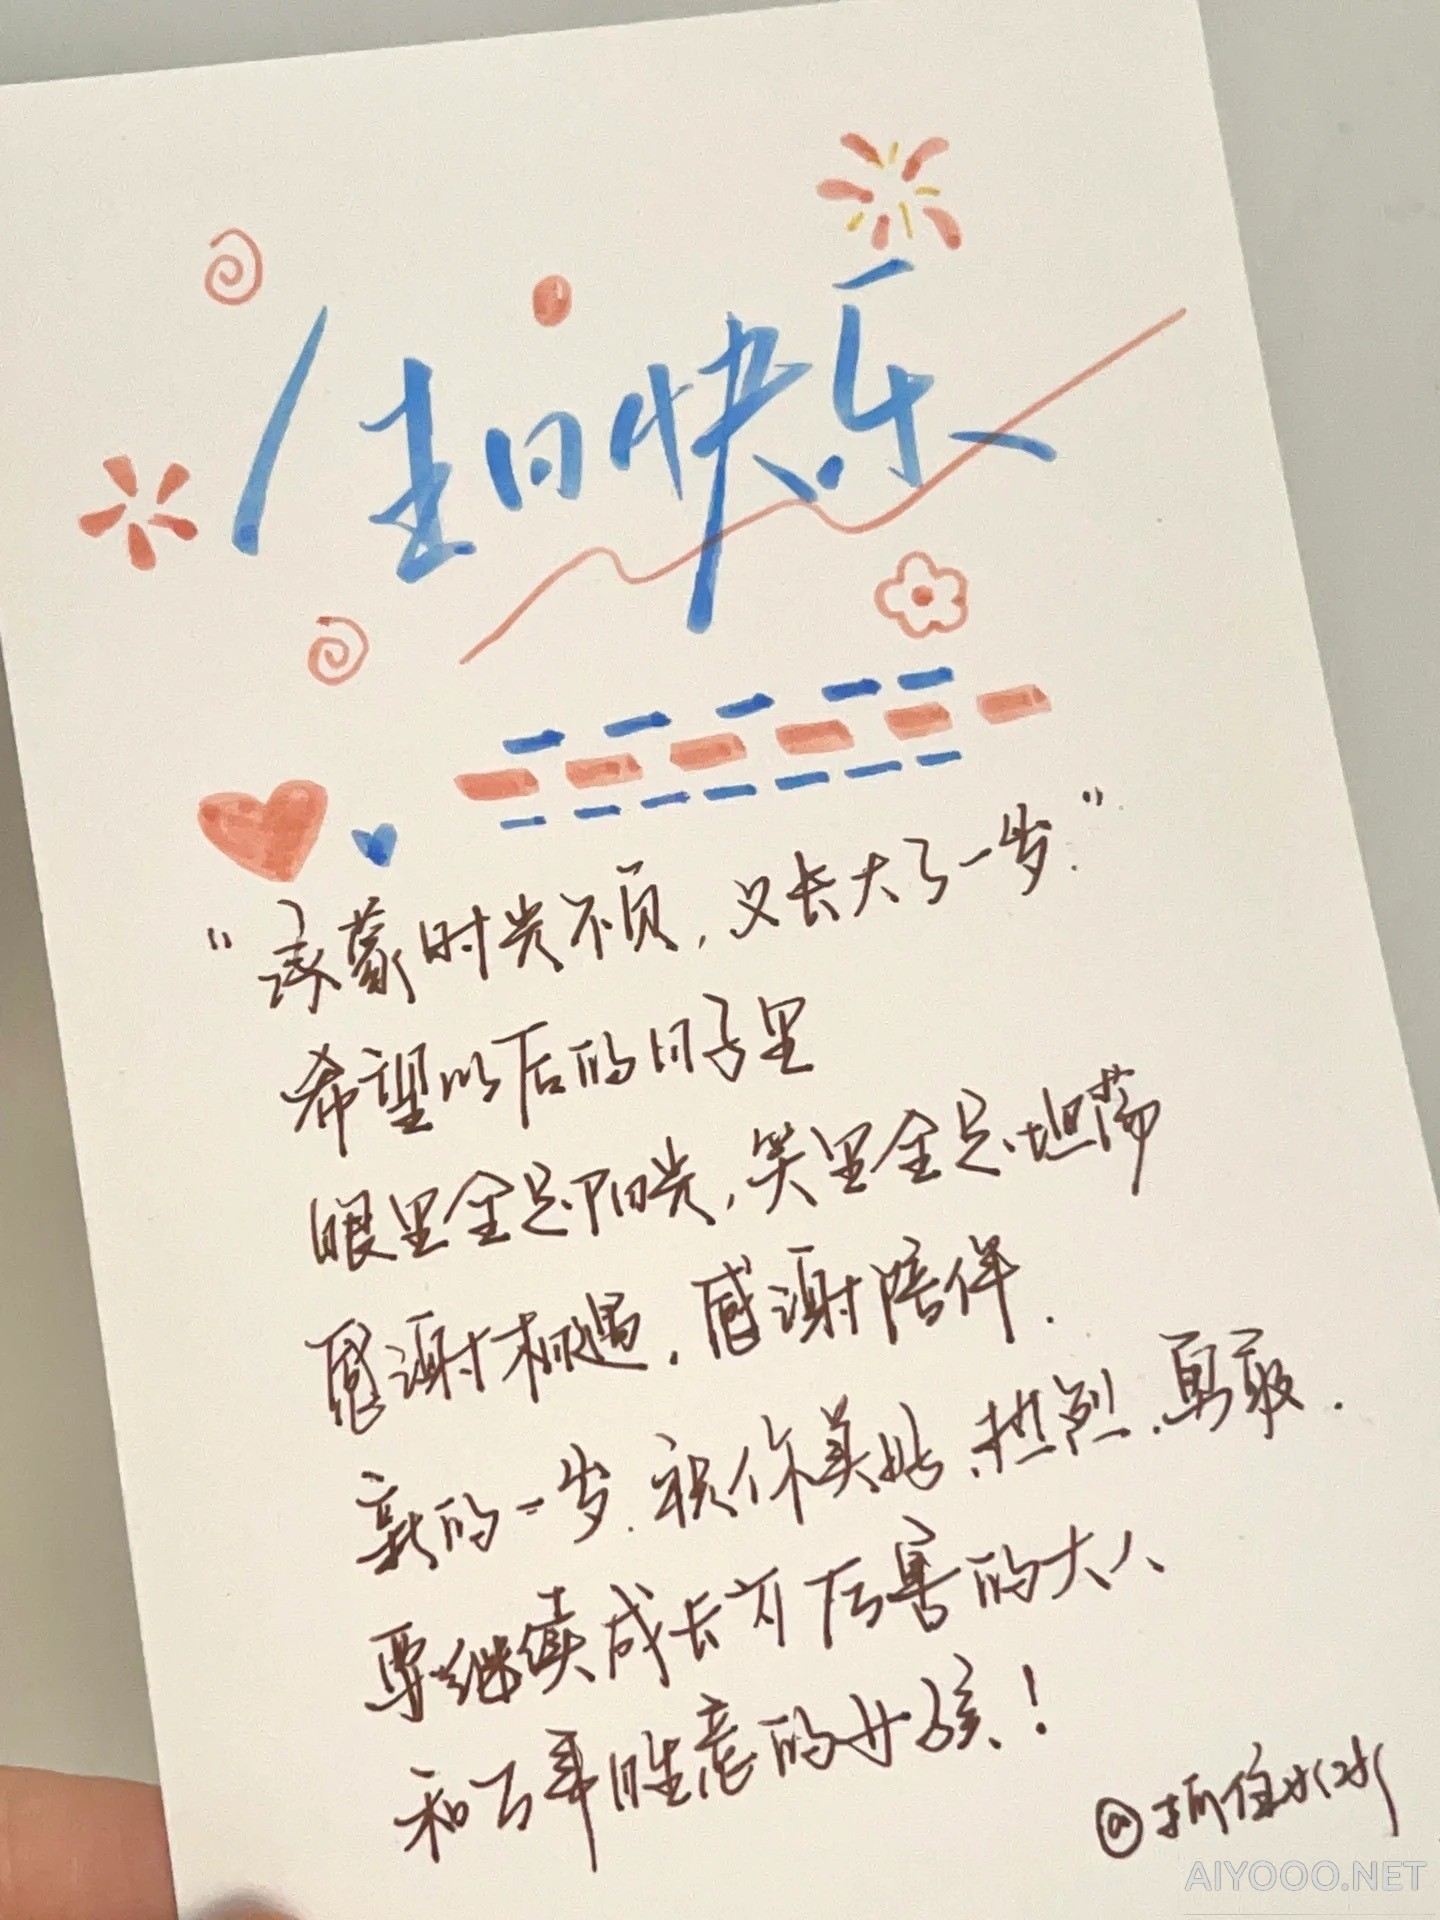 生日快乐
“承蒙时光不负，又长大了一岁.”
希望以后的日子里
眼里全是阳光，笑里全是坦荡
感谢相遇，感谢陪伴.
新的一岁.祝你美好、热烈、勇敢.
要继续成长为厉害的大人
和万事胜意的女孩！
@抓住水冰
AIYOOO.NET